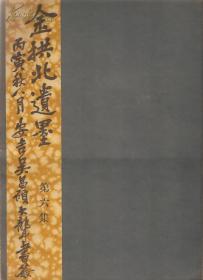 金拱北遺墨
第六集
丙寅秋八月安吉吳昌碩大聾年書耑